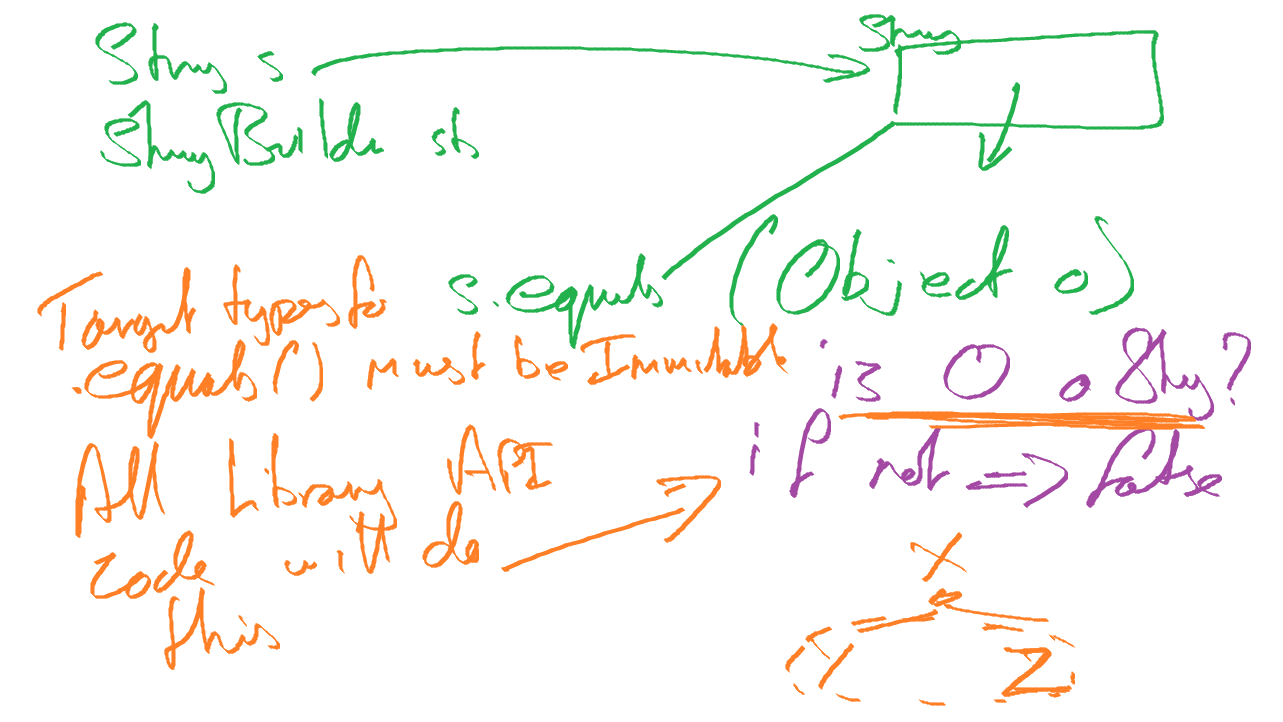 String s
String
StringBuilder sb
s.equals (Object o)
Target types for
.equals() must be Immutable
is O a String?
if not => false
All Library API
code will do
this
X
Y Z